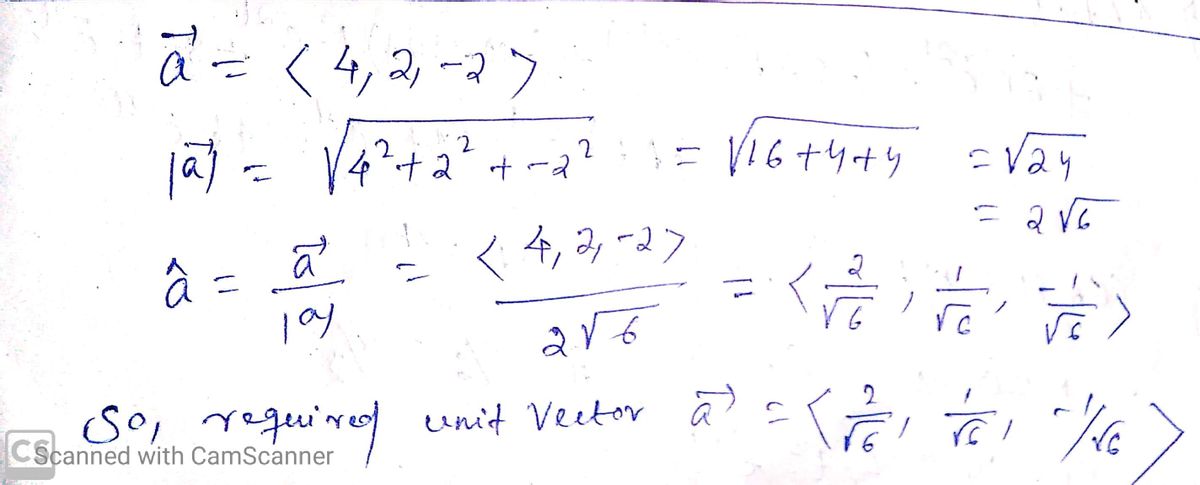 a⃗ = < 4, 2, -2 >
|a⃗| = √4² + 2² + -2² = √16 + 4 + 4 = √24
= 2√6
â = a⃗ / |a| = < 4, 2, -2 > / 2√6 = < 2/√6 , 1/√6 , -1/√6 >
So, required unit Vector a⃗ = < 2/√6 , 1/√6 , -1/√6 >
CS Scanned with CamScanner